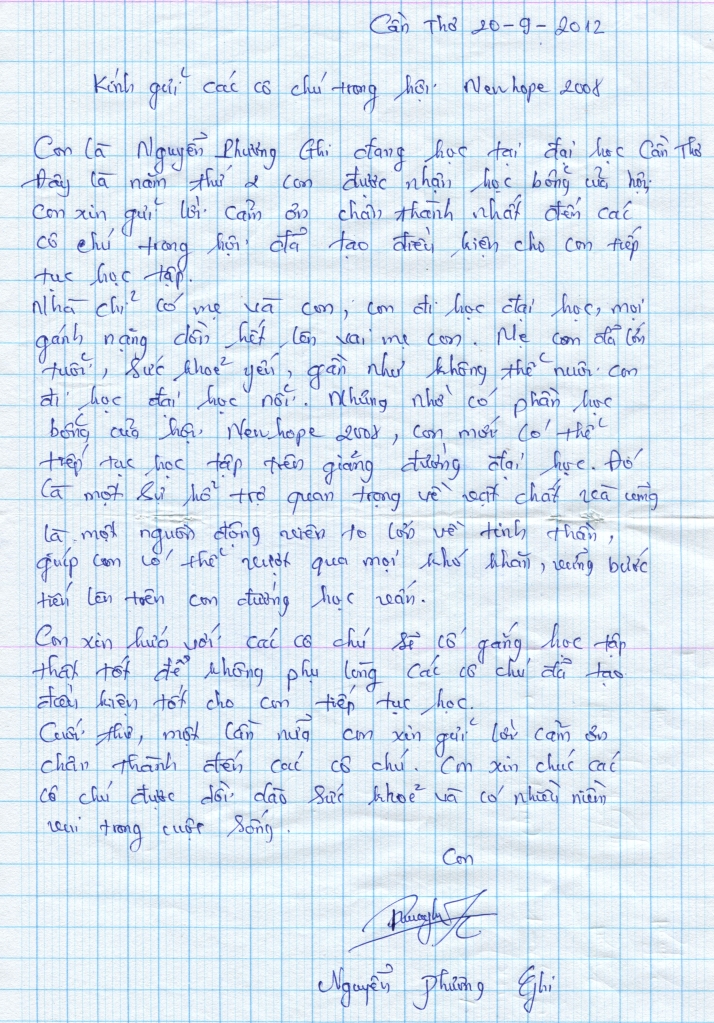 Cần Thơ 20-9-2012
Kính gửi các cô chú trong hội New hope 2008
Con là Nguyễn Phương Ghi đang học tại đại học Cần Thơ
Đây là năm thứ 2 con được nhận học bổng của hội,
con xin gửi lời cảm ơn chân thành nhất đến các
cô chú trong hội đã tạo điều kiện cho con tiếp
tục học tập.
Nhà chỉ có mẹ và con, con đi học đại học, mọi
gánh nặng dồn hết lên vai mẹ con. Mẹ con đã lớn
tuổi, sức khoẻ yếu, gần như không thể nuôi con
đi học đại học nổi. Nhưng nhờ có phần học
bổng của hội New hope 2008, con mới có thể
tiếp tục học tập trên giảng đường đại học. Đó
là một sự hỗ trợ quan trọng về vật chất và cũng
là một nguồn động viên to lớn về tinh thần,
giúp con có thể vượt qua mọi khó khăn, vững bước
tiến lên trên con đường học vấn.
Con xin hứa với các cô chú sẽ cố gắng học tập
thật tốt để không phụ lòng các cô chú đã tạo
điều kiện tốt cho con tiếp tục học.
Cuối thư, một lần nữa con xin gửi lời cảm ơn
chân thành đến các cô chú. Con xin chúc các
cô chú được dồi dào sức khoẻ và có nhiều niềm
vui trong cuộc sống.
Con
Nguyễn Phương Ghi